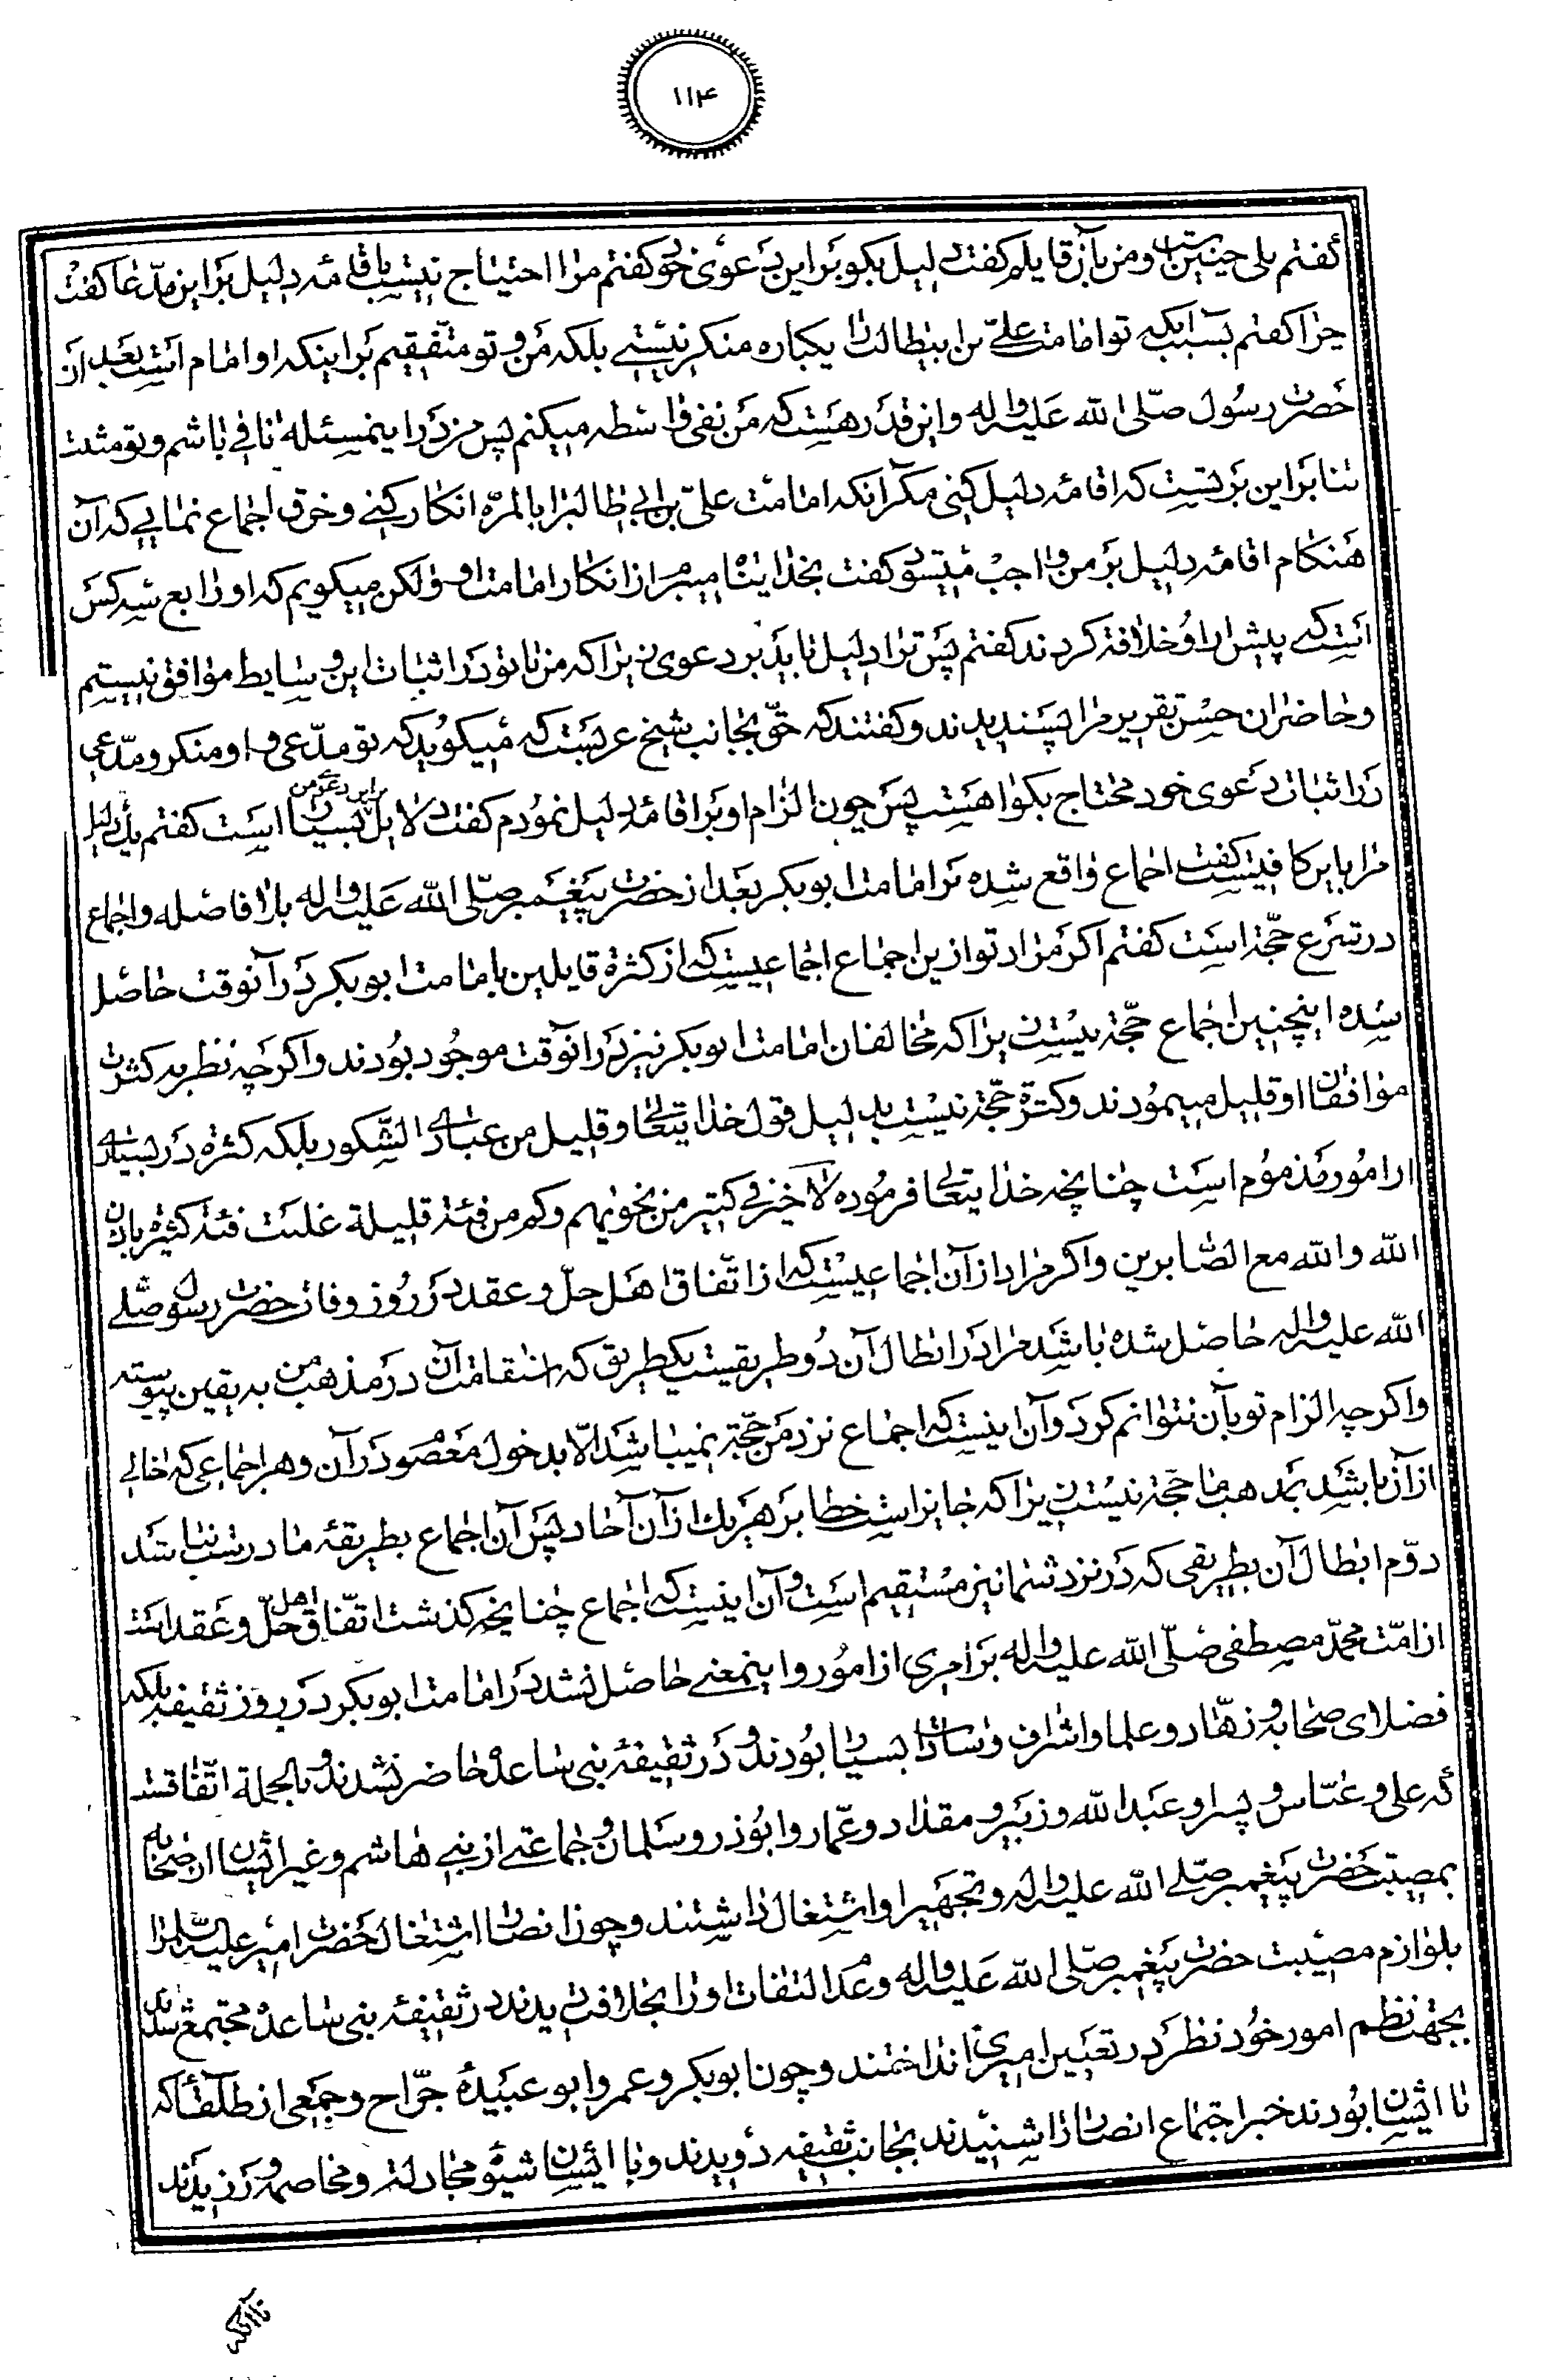 ۱۱۴
گفتم بلی چنین است و من بآن قایلم گفت دلیل بگو بر این دعوی خود گفتم مرا احتیاج نیست باقامه دلیل بر این مدّعا گفت
چرا گفتم بسبب اینکه تو امامت علیّ بن ابیطالب را یکباره منکر نیستی بلکه من و تو متّفقیم بر اینکه او امام است بعد از
حضرت رسول صلّی الله علیه و اله و این قدر هست که من نفی واسطه میکنم پس من در اینمسئله نافی باشم و تو مثبت
بنا بر این بر تست که اقامه دلیل کنی مگر آنکه امامت علیّ بن ابی طالب را بالمرّه انکار کنی و خرق اجماع نمائی که آن
هنگام اقامه دلیل بر من واجب میشود گفت بخدا پناه میبرم از انکار امامت او ولکن میگویم که او رابع سه کس
است که پیش از او خلافة کردند گفتم پس ترا دلیل باید بر دعوی زیرا که من با تو در اثبات این وسایط موافق نیستم
و حاضران حسن تقریر مرا پسندیدند و گفتند که حقّ بجانب شیخ عربست که میگوید که تو مدّعی و او منکر و مدّعی
در اثبات دعوی خود محتاج بگواهست پس چون الزام او بر اقامه دلیل نمودم گفت دلایل بر این دعوی من بسیار است گفتم یک دلیل
مرا باین کافیست گفت اجماع واقع شده بر امامت ابوبکر بعد از حضرت پیغمبر صلّی الله علیه و اله بلا فاصله و اجماع
در شرع حجّة است گفتم اگر مراد تو از این اجماع اجماعیست که از کثرة قایلین بامامت ابوبکر در آنوقت حاصل
شده اینچنین اجماع حجّة نیست زیرا که مخالفان امامت ابوبکر نیز در آنوقت موجود بودند و اگر چه نظر به کثرت
موافقان او قلیل مینمودند و کثرة حجّة نیست بدلیل قول خدایتعالی و قلیل من عبادی الشّکور بلکه کثرة در بسیاری
از امور مذموم است چنانچه خدایتعالی فرموده لا خیر فی کثیر من نجویهم و کم من فئة قلیلة غلبت فئة کثیرة باذن
الله و الله مع الصّابرین و اگر مراد از آن اجماعیست که از اتّفاق اهل حلّ و عقد در روز وفات حضرت رسول صلّی
الله علیه و اله حاصل شده باشد مرا در ابطال آن دو طریقیست یکطریق که استقامت آن در مذهب من به یقین پیوسته
و اگر چه الزام تو بآن نتوانم کرد و آن اینست که اجماع نزد من حجّة نمیباشد الّا بدخول معصوم در آن و هر اجماعی که خالی
از آن باشد بمذهب ما حجّة نیست زیرا که جایز است خطا بر هر یک از آن آحاد پس آن اجماع بطریقه ما درست نباشد
دوّم ابطال آن بطریقی که در نزد شما نیز مستقیم است و آن اینست که اجماع چنانچه گذشت اتّفاق اهل حلّ و عقد است
از امّت محمّد مصطفی صلّی الله علیه و اله بر امری از امور و اینمعنی حاصل نشد در امامت ابوبکر در روز ثقیفه بلکه
فضلای صحابه و زهّاد و علما و اشراف و سادات بسیار بودند و در ثقیفه بنی ساعده حاضر نشدند و بالجملة اتّفاقست
که علی و عبّاس و پسر او عبد الله و زبیر و مقداد و عمّار و ابوذر و سلمان و جماعتی از بنی هاشم و غیر ایشان از صحابه
بمصیبت حضرت پیغمبر صلّی الله علیه و اله و تجهیز او اشتغال داشتند و چون انصار اشتغال حضرت امیر علیه السّلام را
بلوازم مصیبت حضرت پیغمبر صلّی الله علیه و اله و عدم التفات او را بخلافت دیدند در ثقیفه بنی ساعده مجتمع شدند
بجهت نظم امور خود نظر در تعیین امیری انداختند و چون ابوبکر و عمر و ابو عبیدهٔ جرّاح و جمعی از طلقا که
با ایشان بودند خبر اجتماع انصار را شنیدند بجانب ثقیفه دویدند و با ایشان شیوه مجادله و مخاصمه ورزیدند
تا آنکه